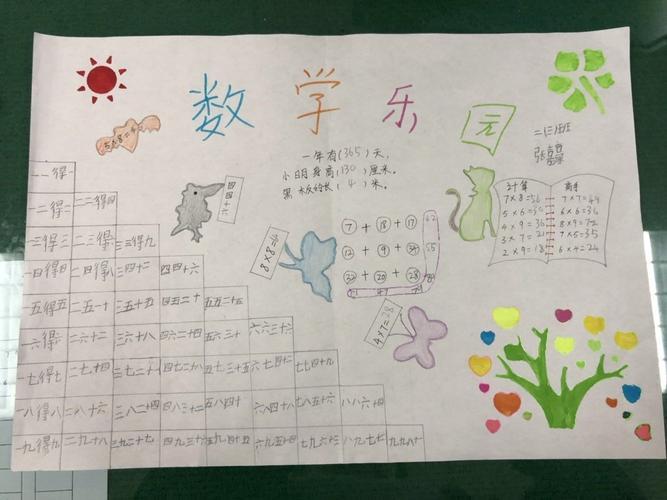 数学乐园
二(三)班
5×8=40
一年有(365)天,
小明身高(130)厘米。
黑板约长(4)米。
四四十六
8×8=64
4×7=28
⑦+⑱+⑰ 42
⑫+⑨+㉞ 55
㉜+⑳+㉘ 80
51 47 79
计算
7×8=56
5×6=30
4×9=36
3×7=21
2×9=18
7×7=49
6×6=36
8×9=72
7×5=35
6×4=24
一一得一
一二得二 二二得四
一三得三 二三得六 三三得九
一四得四 二四得八 三四十二 四四十六
一五得五 二五一十 三五十五 四五二十 五五二十五
一六得六 二六十二 三六十八 四六二十四 五六三十 六六三十六
一七得七 二七十四 三七二十一 四七二十八 五七三十五 六七四十二 七七四十九
一八得八 二八十六 三八二十四 四八三十二 五八四十 六八四十八 七八五十六 八八六十四
一九得九 二九十八 三九二十七 四九三十六 五九四十五 六九五十四 七九六十三 八九七十二 九九八十一